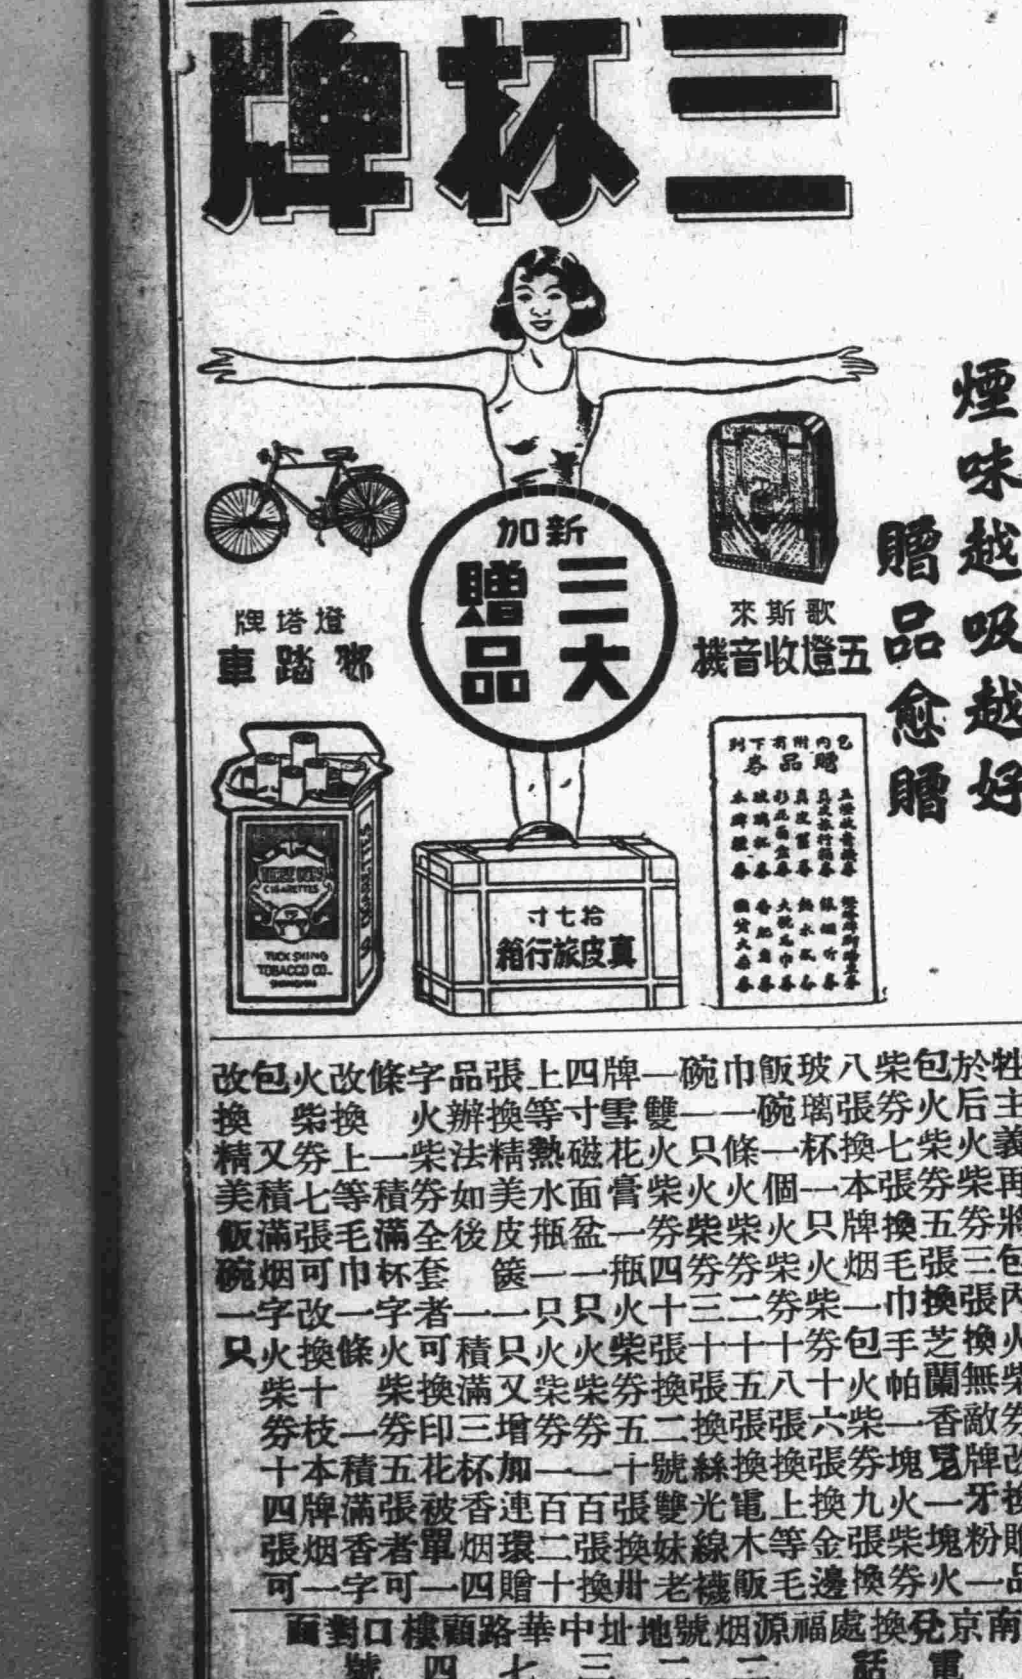 三杯牌
煙味越吸越好
贈品愈贈
新加
三大
贈品
歌斯來
五燈收音機
燈塔牌
腳踏車
包內附有下列
贈品券
拾七寸
真皮旅行箱
CIGARETTES
TUCK SHING
TOBACCO CO.
SHANGHAI
牲主義再將包內火柴券改換贈品
於后火柴券三張換無敵牌牙粉一
包火柴券五張換芝蘭香皂一塊火
柴券七張換毛巾手帕一塊火柴券
八張換本牌烟一包火柴券九張換
玻璃杯一只火柴券十六張換金邊
飯碗一個火柴券十八張換上等毛
巾一條火柴券二十五張換電木飯
碗一只火柴券三十張換絲光線襪
一雙火柴券四十張換二號雙妹老
牌雪花膏一瓶火柴券五十張換卅
四寸磁面盆一只火柴券一百張換
上等熱水瓶一只火柴券一百二十
張換精美皮篋一只又增加連環贈
品辦法如後 一積滿三杯香烟四
字火柴券全套者可換印花被單一
條 一積滿杯字火柴券五張者可
改換上等毛巾一條 一積滿香字
火柴券七張可改換十枝本牌烟一
包 又積滿烟字火柴券十四張可
改換精美飯碗一只
南京兌換處福源烟號地址中華路顧樓口對面
電話二二三七四號